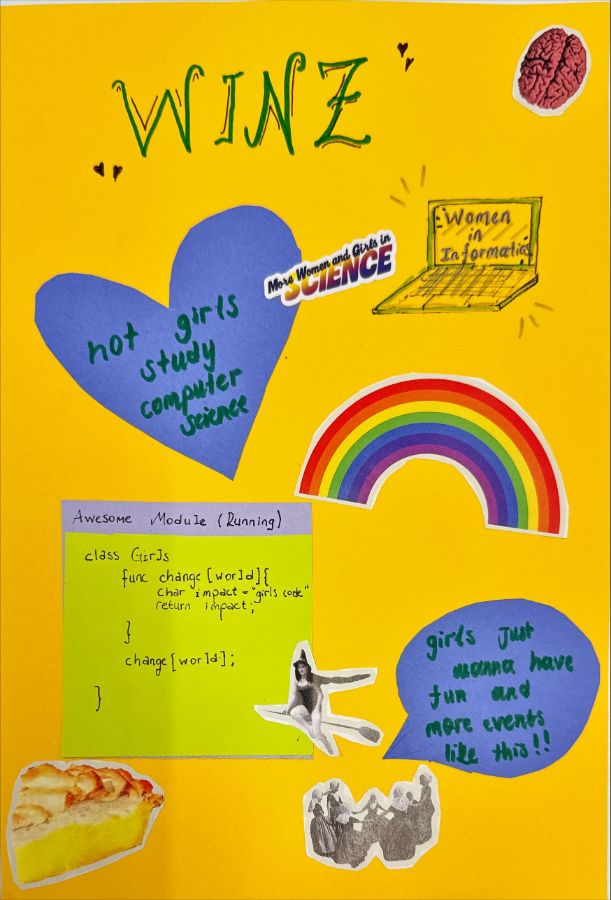 WINZ
Women
in
Informatics
More Women and Girls in
SCIENCE
hot girls
study
computer
science
Awesome Module (Running)
class Girls
func change[world]{
char impact="girls code"
return impact;
}
change[world];
}
girls just
wanna have
fun and
more events
like this!!